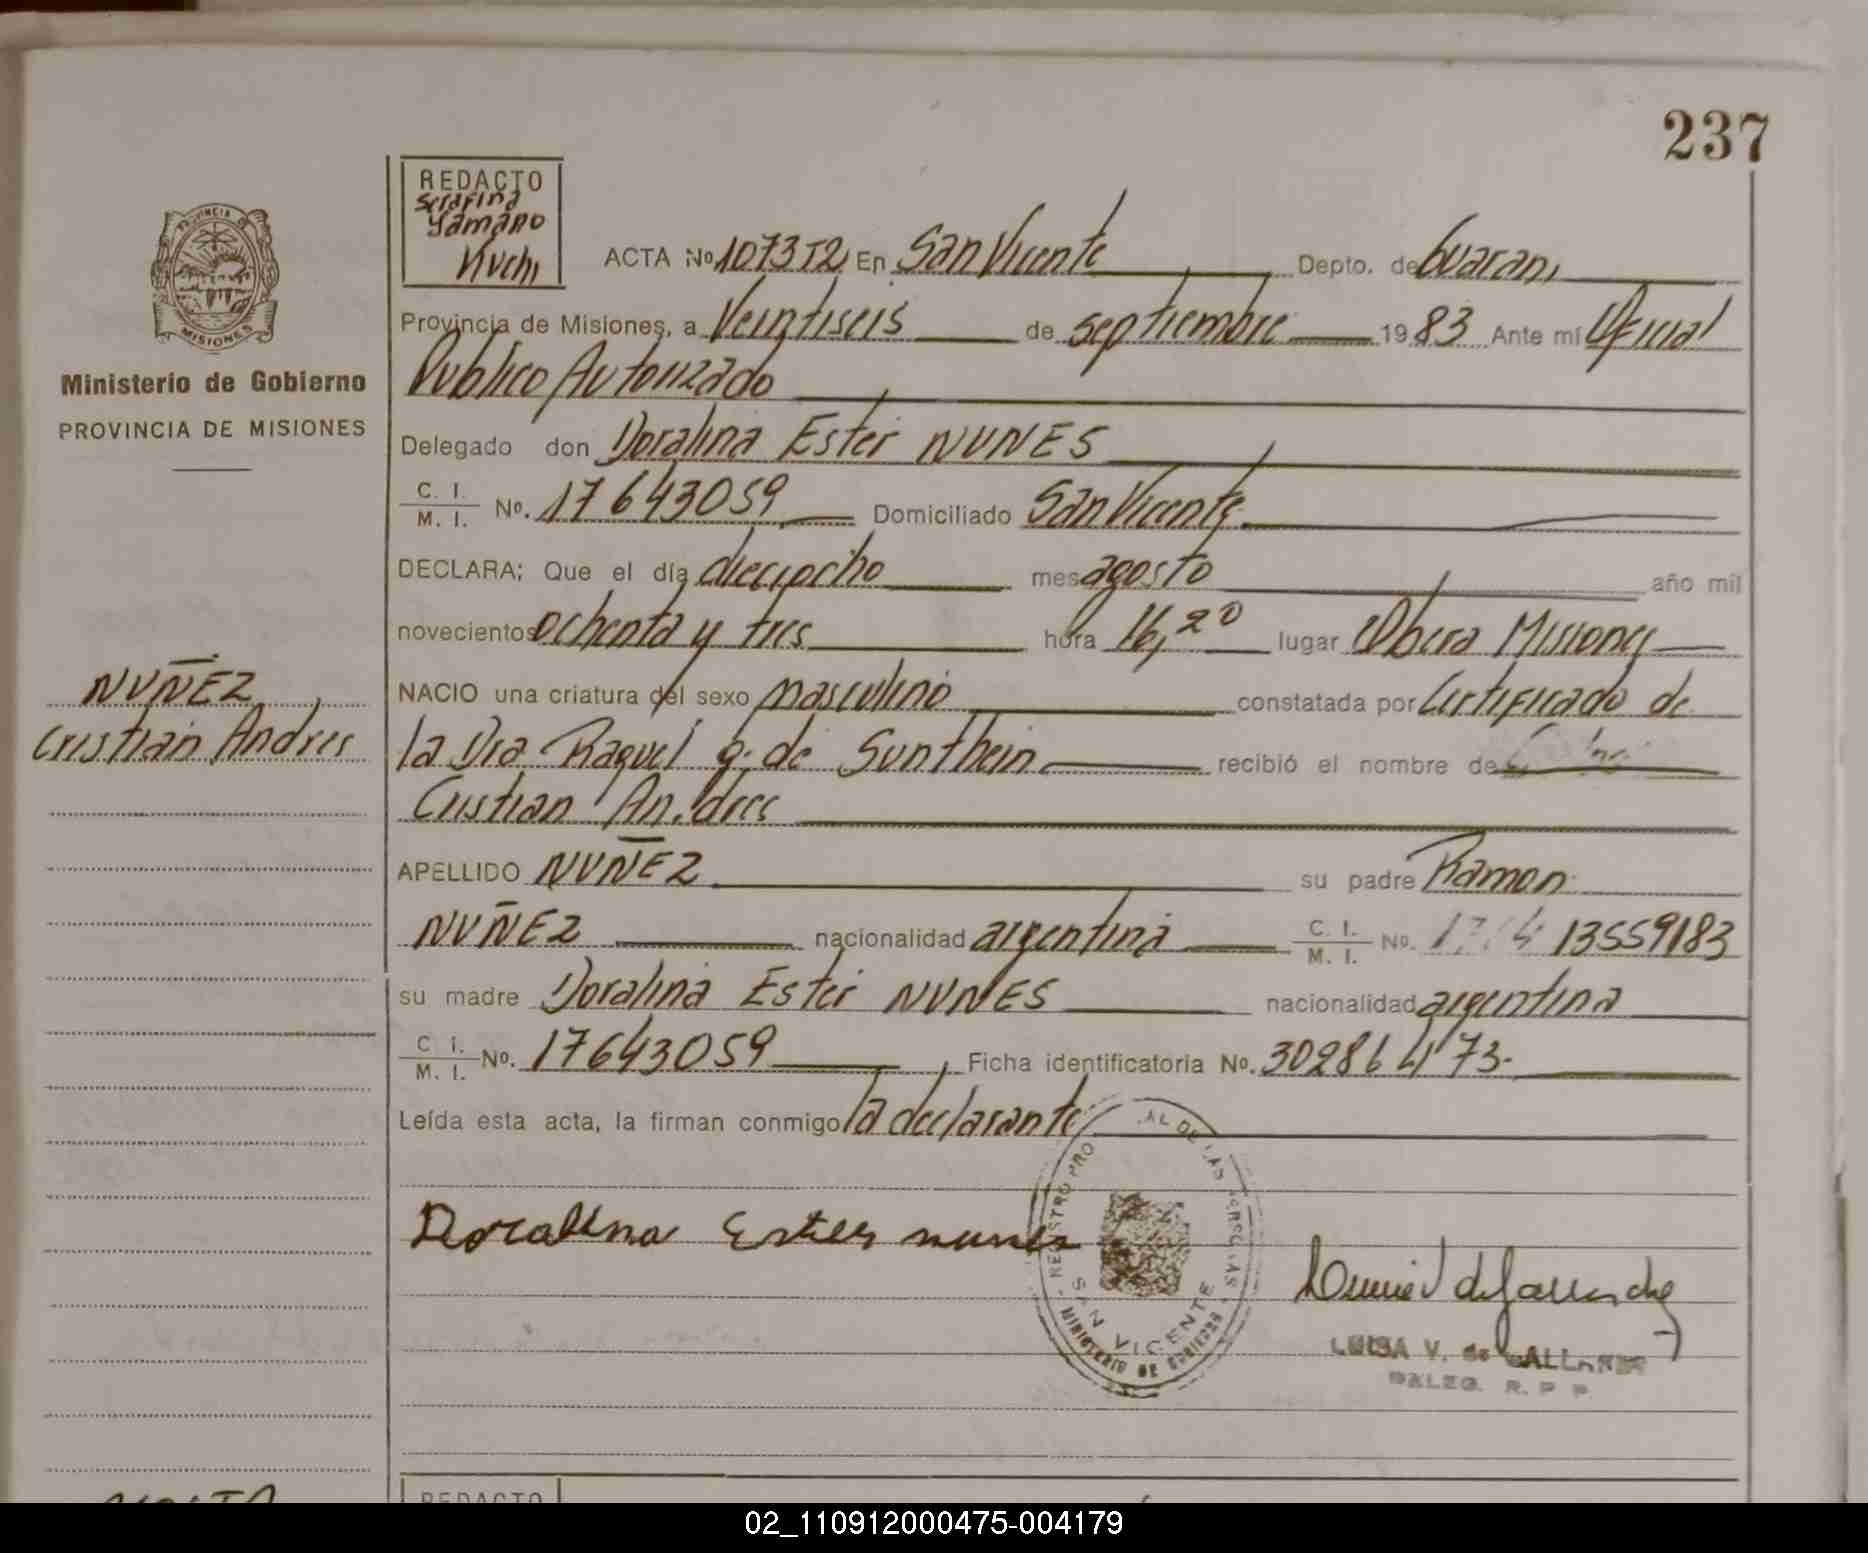 237
REDACTO
Serafina
Kuchi
ACTA Nº 107352 En San Vicente Depto. de Guarani
Provincia de Misiones, a Veintiseis de septiembre 1983 Ante mí Oficial
Publico Autorizado
Delegado don Doralina Ester NUNES
C. I. / M. I. Nº. 17643059 Domiciliado San Vicente
DECLARA; Que el día dieciocho mes agosto año mil
novecientos ochenta y tres hora 16,20 lugar Obera Misiones
NACIO una criatura del sexo masculino constatada por Certificado de
la Dra Raquel g. de Sunthein recibió el nombre de
Cristian Andres
APELLIDO NUÑEZ su padre Ramon
NUÑEZ nacionalidad argentina C. I. / M. I. Nº. 13559183
su madre Doralina Ester NUNES nacionalidad argentina
C. I. / M. I. Nº. 17643059 Ficha identificatoria Nº. 30286473.
Leída esta acta, la firman conmigo la declarante
Doralina Ester nunes
LUISA V. de GALLARDO
DELEG. R. P. P.
SAN VICENTE
MINISTERIO DE GOBIERNO
PROVINCIA DE
MISIONES
Ministerio de Gobierno
PROVINCIA DE MISIONES
NUÑEZ
Cristian Andres
REDACTO
02_110912000475-004179